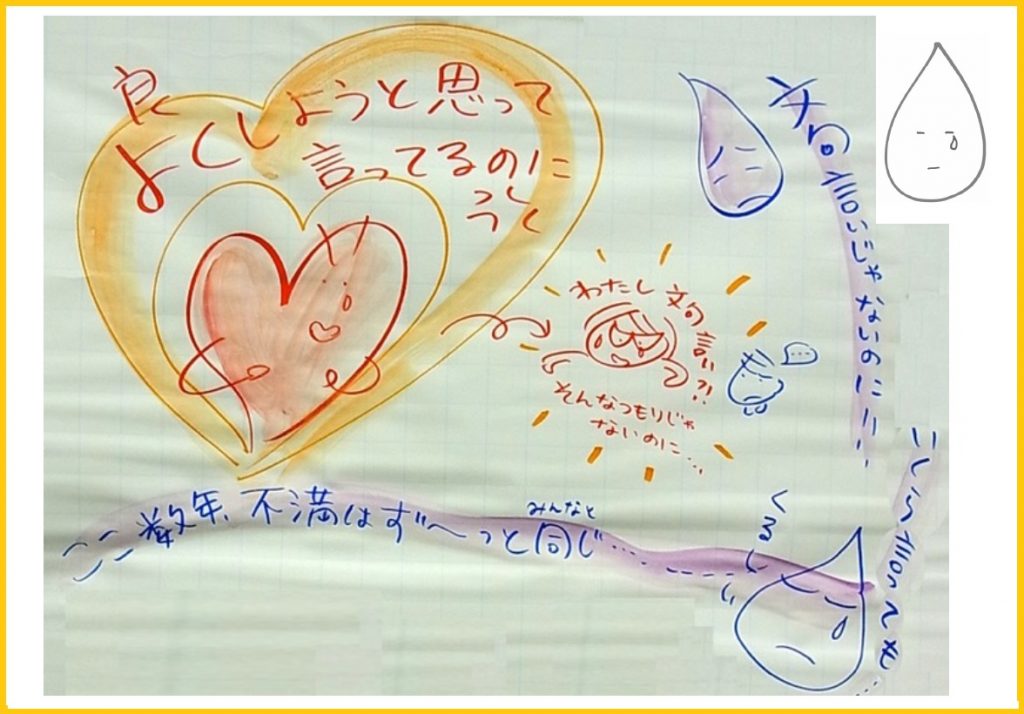 良
よくしようと思って
言ってるのに
わたし 文句 言い?!
そんなつもりじゃ
ないのに…
…
文句言いじゃないのに!!!
ここ数年、不満はず〜っと同じ…
みんなと
くるしい
いくら言っても…